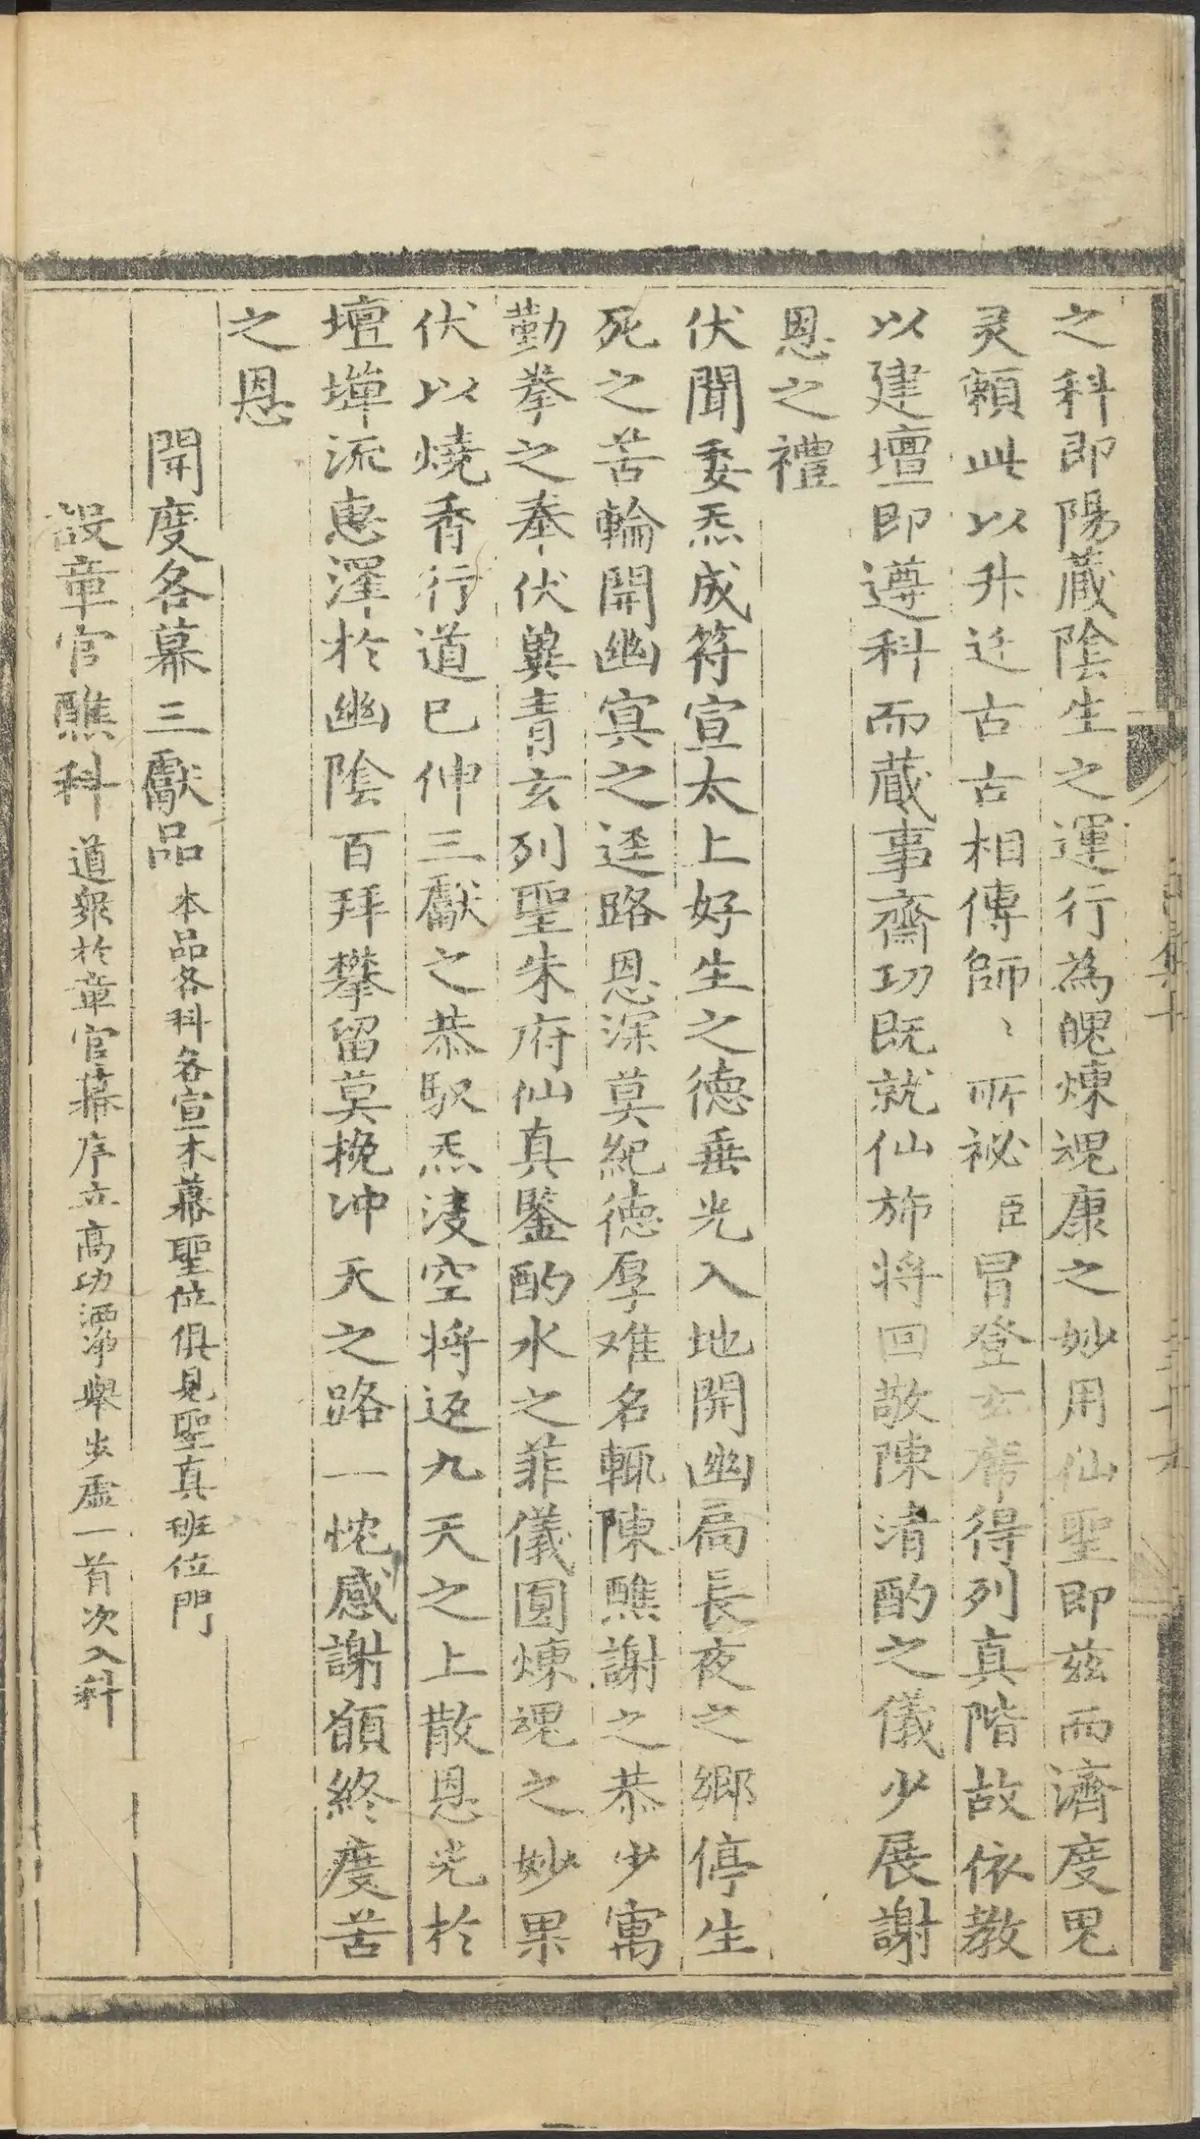 之科即陽蔵陰生之運行為魄煉魂康之妙用仙聖即兹而濟度鬼
灵頼此以升迁古古相傳師〻所祕臣冒登玄席得列真階故依教
以建壇即遵科而蕆事齋功既就仙斾将回敬陳清酌之儀少展謝
恩之禮
伏聞委炁成符宣太上好生之德垂光入地開幽扃長夜之鄉停生
死之苦輪開幽冥之逕路恩深莫紀德厚难名輒陳醮謝之恭少寓
勤拳之奉伏冀青玄列聖朱府仙真鑒酌水之菲儀圓煉魂之妙果
伏以燒香行道已伸三獻之恭馭炁淩空将返九天之上散恩光於
壇墠流惠澤於幽陰百拜攀留莫挽冲天之路一忱感謝願終度苦
之恩
開度各幕三獻品 本品各科各宣本幕聖位俱見聖真班位門
設章官醮科 道衆於章官幕序立高功洒净舉步虚一首次入科